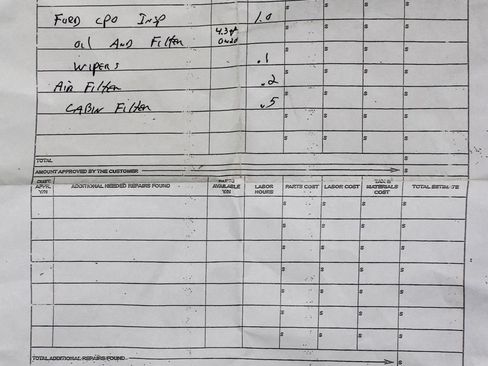 FORD CPO INSP 1.0 $ $ $ $
OIL AND FILTER 4.3 qt $ $ $ $
0w20
WIPERS .1 $ $ $ $
AIR FILTER .2 $ $ $ $
CABIN FILTER .5 $ $ $ $
$ $ $ $
$ $ $ $
TOTAL $
AMOUNT APPROVED BY THE CUSTOMER $
CUST. APVL. Y/N ADDITIONAL NEEDED REPAIRS FOUND PARTS AVAILABLE Y/N LABOR HOURS PARTS COST LABOR COST TAX & MATERIALS COST TOTAL ESTIMATE
$ $ $ $
$ $ $ $
$ $ $ $
$ $ $ $
$ $ $ $
$ $ $ $
$ $ $ $
TOTAL ADDITIONAL REPAIRS FOUND $